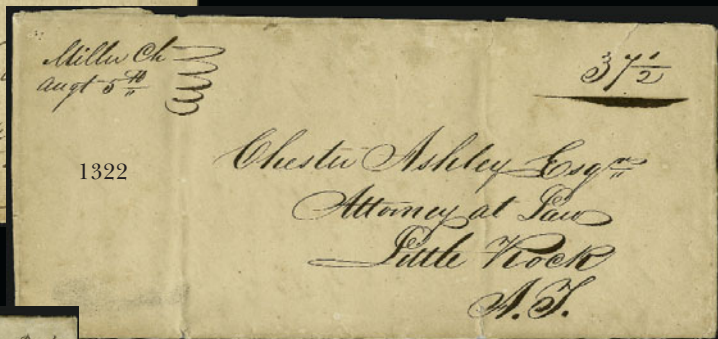 Miller Ch
Augt 5th
37 1/2
1322
Chester Ashley Esqre
Attorney at Law
Little Rock
A.T.